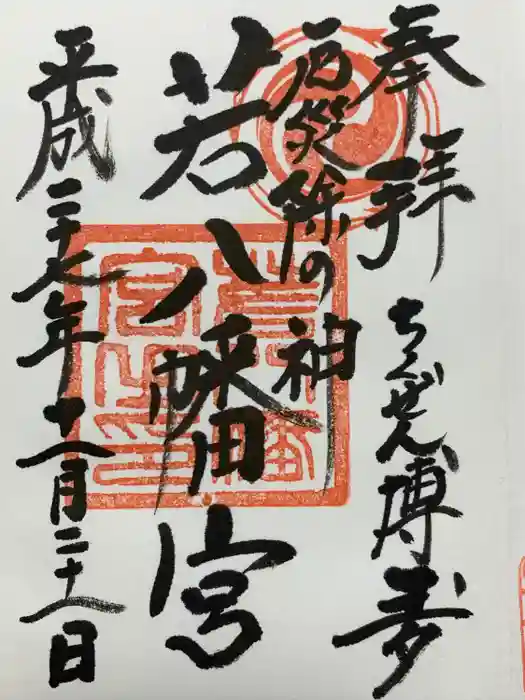 奉拝
ちくぜん博多
厄災除の神
若八幡宮
平成二十七年十一月二十一日
若八幡
宮之印